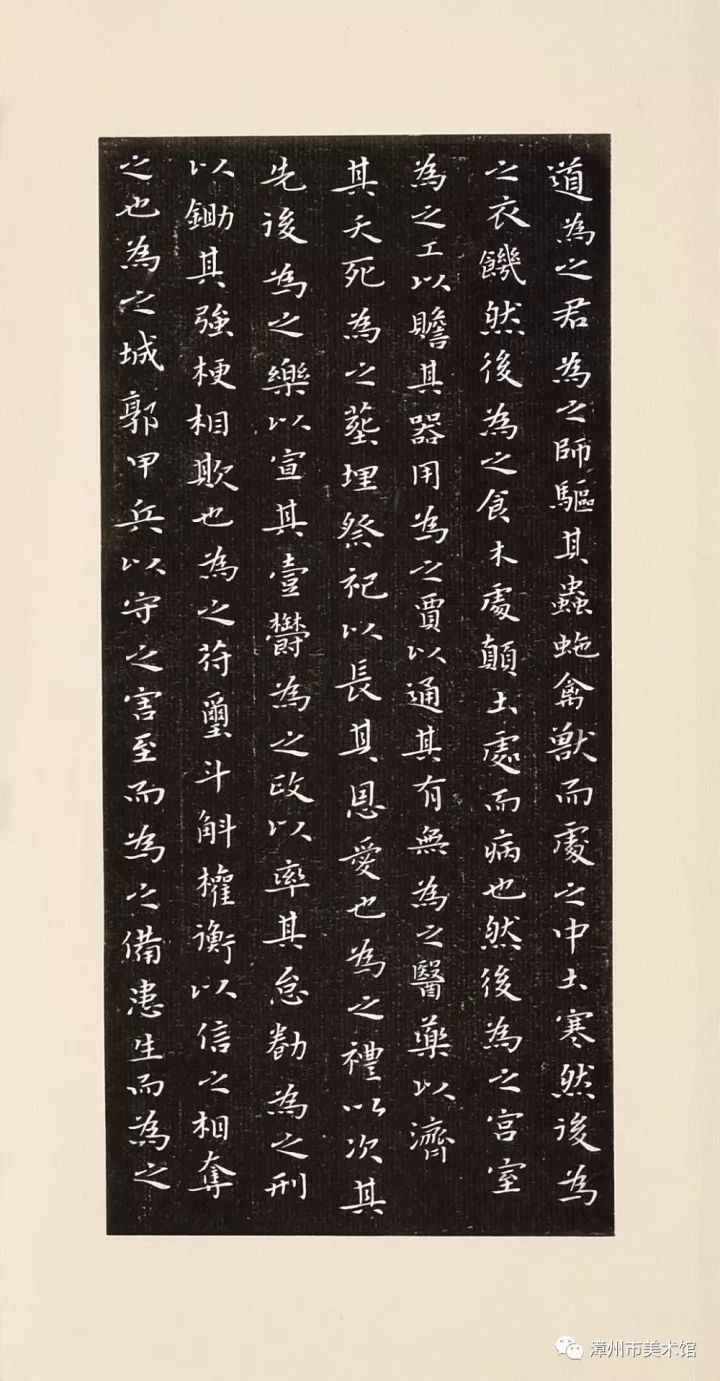 道為之君為之師驅其蟲虵禽獸而處之中土寒然後為
之衣饑然後為之食木處顛土處而病也然後為之宮室
為之工以贍其器用為之賈以通其有無為之醫藥以濟
其夭死為之葬埋祭祀以長其恩愛也為之禮以次其
先後為之樂以宣其壹鬱為之政以率其怠勌為之刑
以鋤其強梗相欺也為之符璽斗斛權衡以信之相奪
之也為之城郭甲兵以守之害至而為之備患生而為之
漳州市美术馆